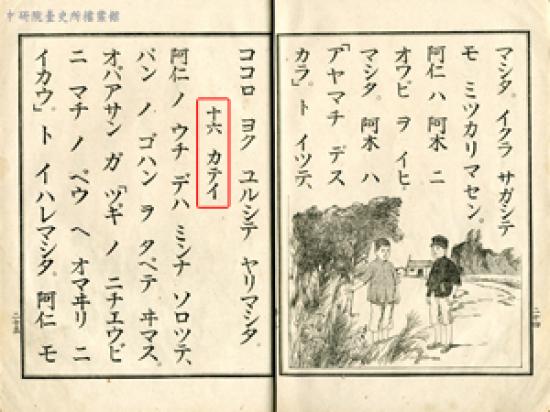 中研院臺史所檔案館
マシタ。イクラ サガシテ
モ ミツカリマセン。
阿仁 ハ 阿木 ニ
オワビ ヲ イヒ
マシタ。阿木 ハ
「アヤマチ デス
カラ」ト イツテ、
二十四
ココロ ヨク ユルシテ ヤリマシタ。
十六 カテイ
阿仁 ノ ウチ デハ ミンナ ソロツテ、
バン ノ ゴハン ヲ タベテ ヰマス。
オバアサン ガ「ツギ ノ ニチエウビ
ニ マチ ノ ベウ ヘ オマヰリ ニ
イカウ」ト イハレマシタ。阿仁 モ
二十五